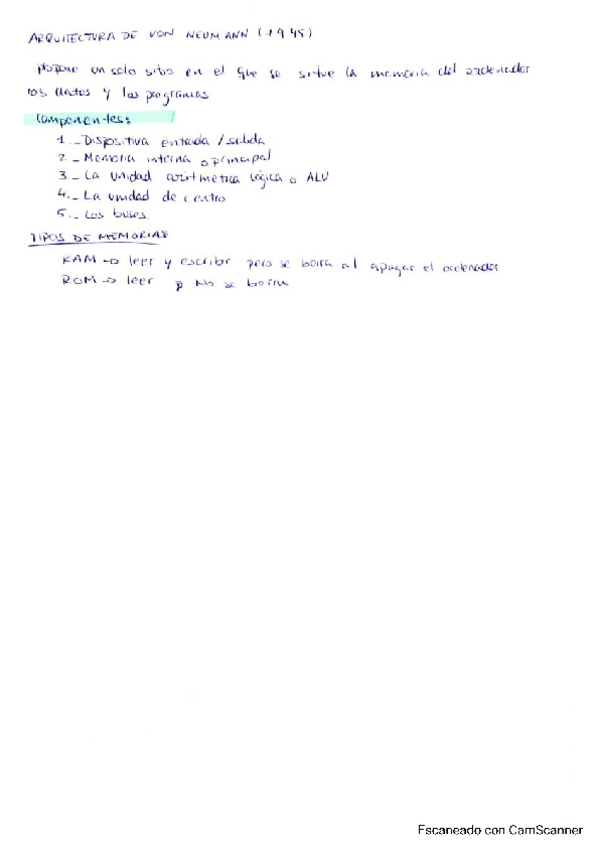 ARQUITECTURA DE VON NEUMANN (1945)
Propone un solo sitio en el que se situe la memoria del ordenador
los datos y los programas
Componentes:
1._ Dispositiva entrada / salida
2_ Memoria interna o principal
3._ La unidad aritmetica lógica o ALU
4._ La unidad de centro
5._ Los buses.
TIPOS DE MEMORIAS
RAM → leer y escribir pero se borra al apagar el ordenador
ROM → leer y No se borra
Escaneado con CamScanner